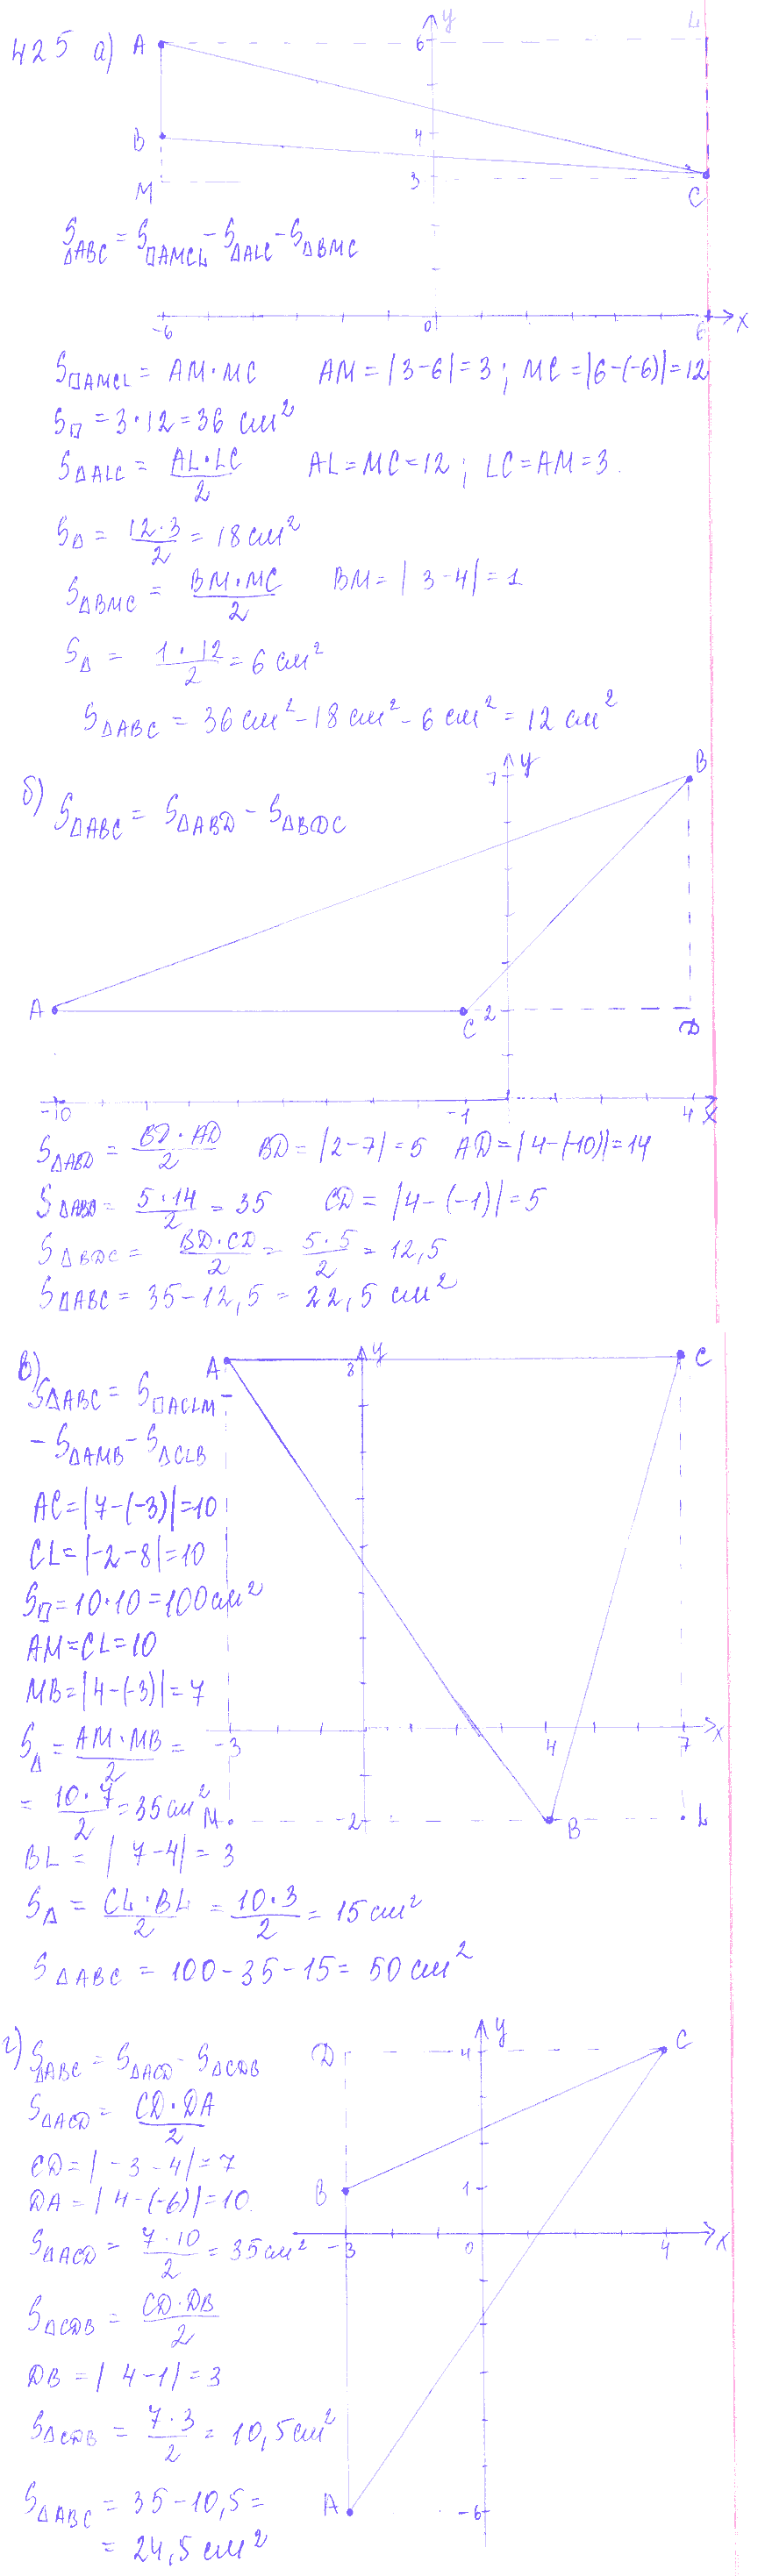 425 а) A
y
6
L
B
4
M
3
C
S△ABC = S□AMCL - S△ALC - S△BMC
-6
0
6
x
S□AMCL = AM·MC AM = |3-6| = 3; MC = |6-(-6)| = 12
S□ = 3·12 = 36 см²
S△ALC = AL·LC/2 AL = MC = 12; LC = AM = 3.
S△ = 12·3/2 = 18 см²
S△BMC = BM·MC/2 BM = |3-4| = 1
S△ = 1·12/2 = 6 см²
S△ABC = 36 см² - 18 см² - 6 см² = 12 см²
б) S△ABC = S△ABD - S△BDC
7
y
B
A
C
2
D
-10
-1
4
x
S△ABD = BD·AD/2 BD = |2-7| = 5 AD = |4-(-10)| = 14
S△ABD = 5·14/2 = 35 CD = |4-(-1)| = 5
S△BDC = BD·CD/2 = 5·5/2 = 12,5
S△ABC = 35 - 12,5 = 22,5 см²
в)
A
8
y
C
S△ABC = S□ACLM -
- S△AMB - S△CLB
AC = |7-(-3)| = 10
CL = |-2-8| = 10
S□ = 10·10 = 100 см²
AM = CL = 10
MB = |4-(-3)| = 7
S△ = AM·MB/2 =
-3
4
7
x
= 10·7/2 = 35 см²
M
-2
B
L
BL = |7-4| = 3
S△ = CL·BL/2 = 10·3/2 = 15 см²
S△ABC = 100 - 35 - 15 = 50 см²
г) S△ABC = S△ACD - S△CDB
D
4
y
C
S△ACD = CD·DA/2
CD = |-3-4| = 7
DA = |4-(-6)| = 10
B
1
S△ACD = 7·10/2 = 35 см²
-3
0
4
x
S△CDB = CD·DB/2
DB = |4-1| = 3
S△CDB = 7·3/2 = 10,5 см²
S△ABC = 35 - 10,5 =
= 24,5 см²
A
-6